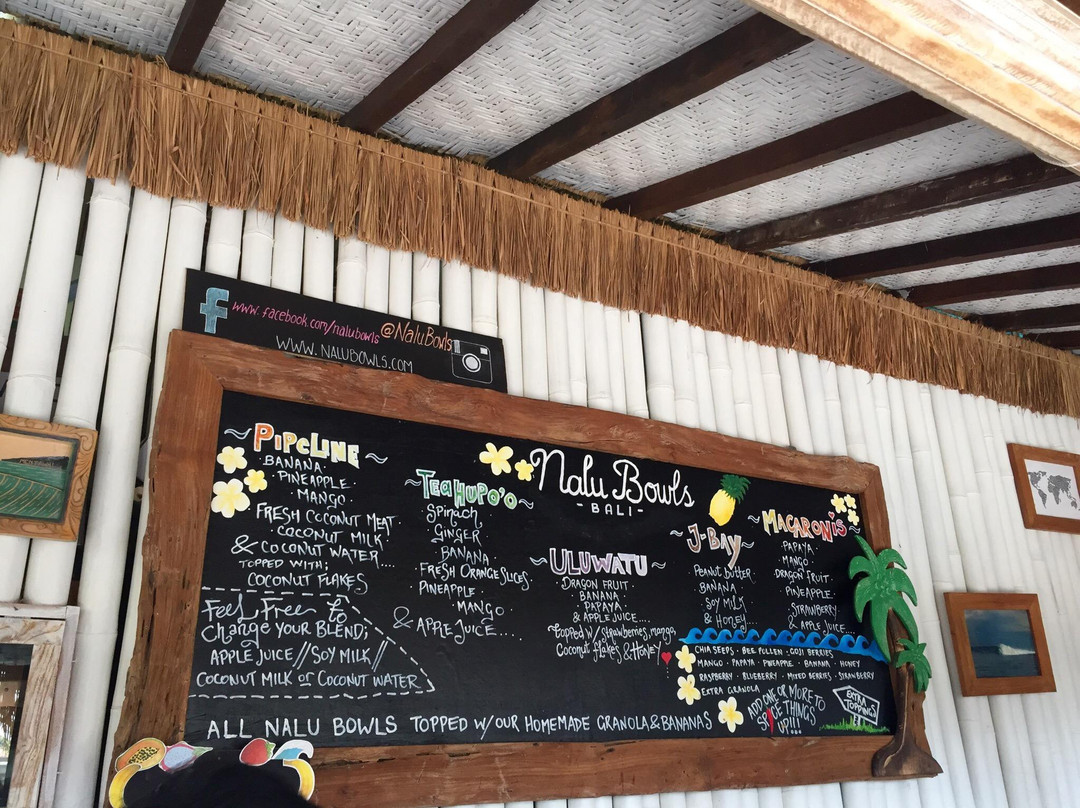 www.facebook.com/nalubowls @NaluBowls
WWW.NALUBOWLS.COM
Nalu Bowls
-BALI-
~PIPELINE~
BANANA.
PINEAPPLE.
MANGO.
FRESH COCONUT MEAT.
COCONUT MILK.
& COCONUT WATER....
TOPPED WITH;
COCONUT FLAKES
Feel Free to
Change YOUR BLEND;
APPLE JUICE // SOY MILK //
COCONUT MILK or COCONUT WATER
~TEAHUPO'O~
Spinach
GINGER.
BANANA.
FRESH ORANGE SLICES.
PINEAPPLE.
MANGO.
& APPLE JUICE....
~ULUWATU~
DRAGON FRUIT.
BANANA.
PAPAYA.
& APPLE JUICE...
topped w/ strawberries, mango,
Coconut flakes & Honey
~J-BAY~
PEANUT BUTTER.
BANANA.
SOY MILK
& HONEY....
~MACARONIS~
PAPAYA.
MANGO.
DRAGON FRUIT.
PINEAPPLE.
STRAWBERRY.
& APPLE JUICE....
CHIA SEEDS · BEE POLLEN · GOJI BERRIES
MANGO · PAPAYA · PINEAPPLE · BANANA · HONEY
RASPBERRY · BLUEBERRY · MIXED BERRIES · STRAWBERRY
EXTRA GRANOLA
ADD ONE OR MORE TO
SPICE THINGS
UP!!!
EXTRA
TOPPINGS
ALL NALU BOWLS TOPPED W/ OUR HOMEMADE GRANOLA & BANANAS